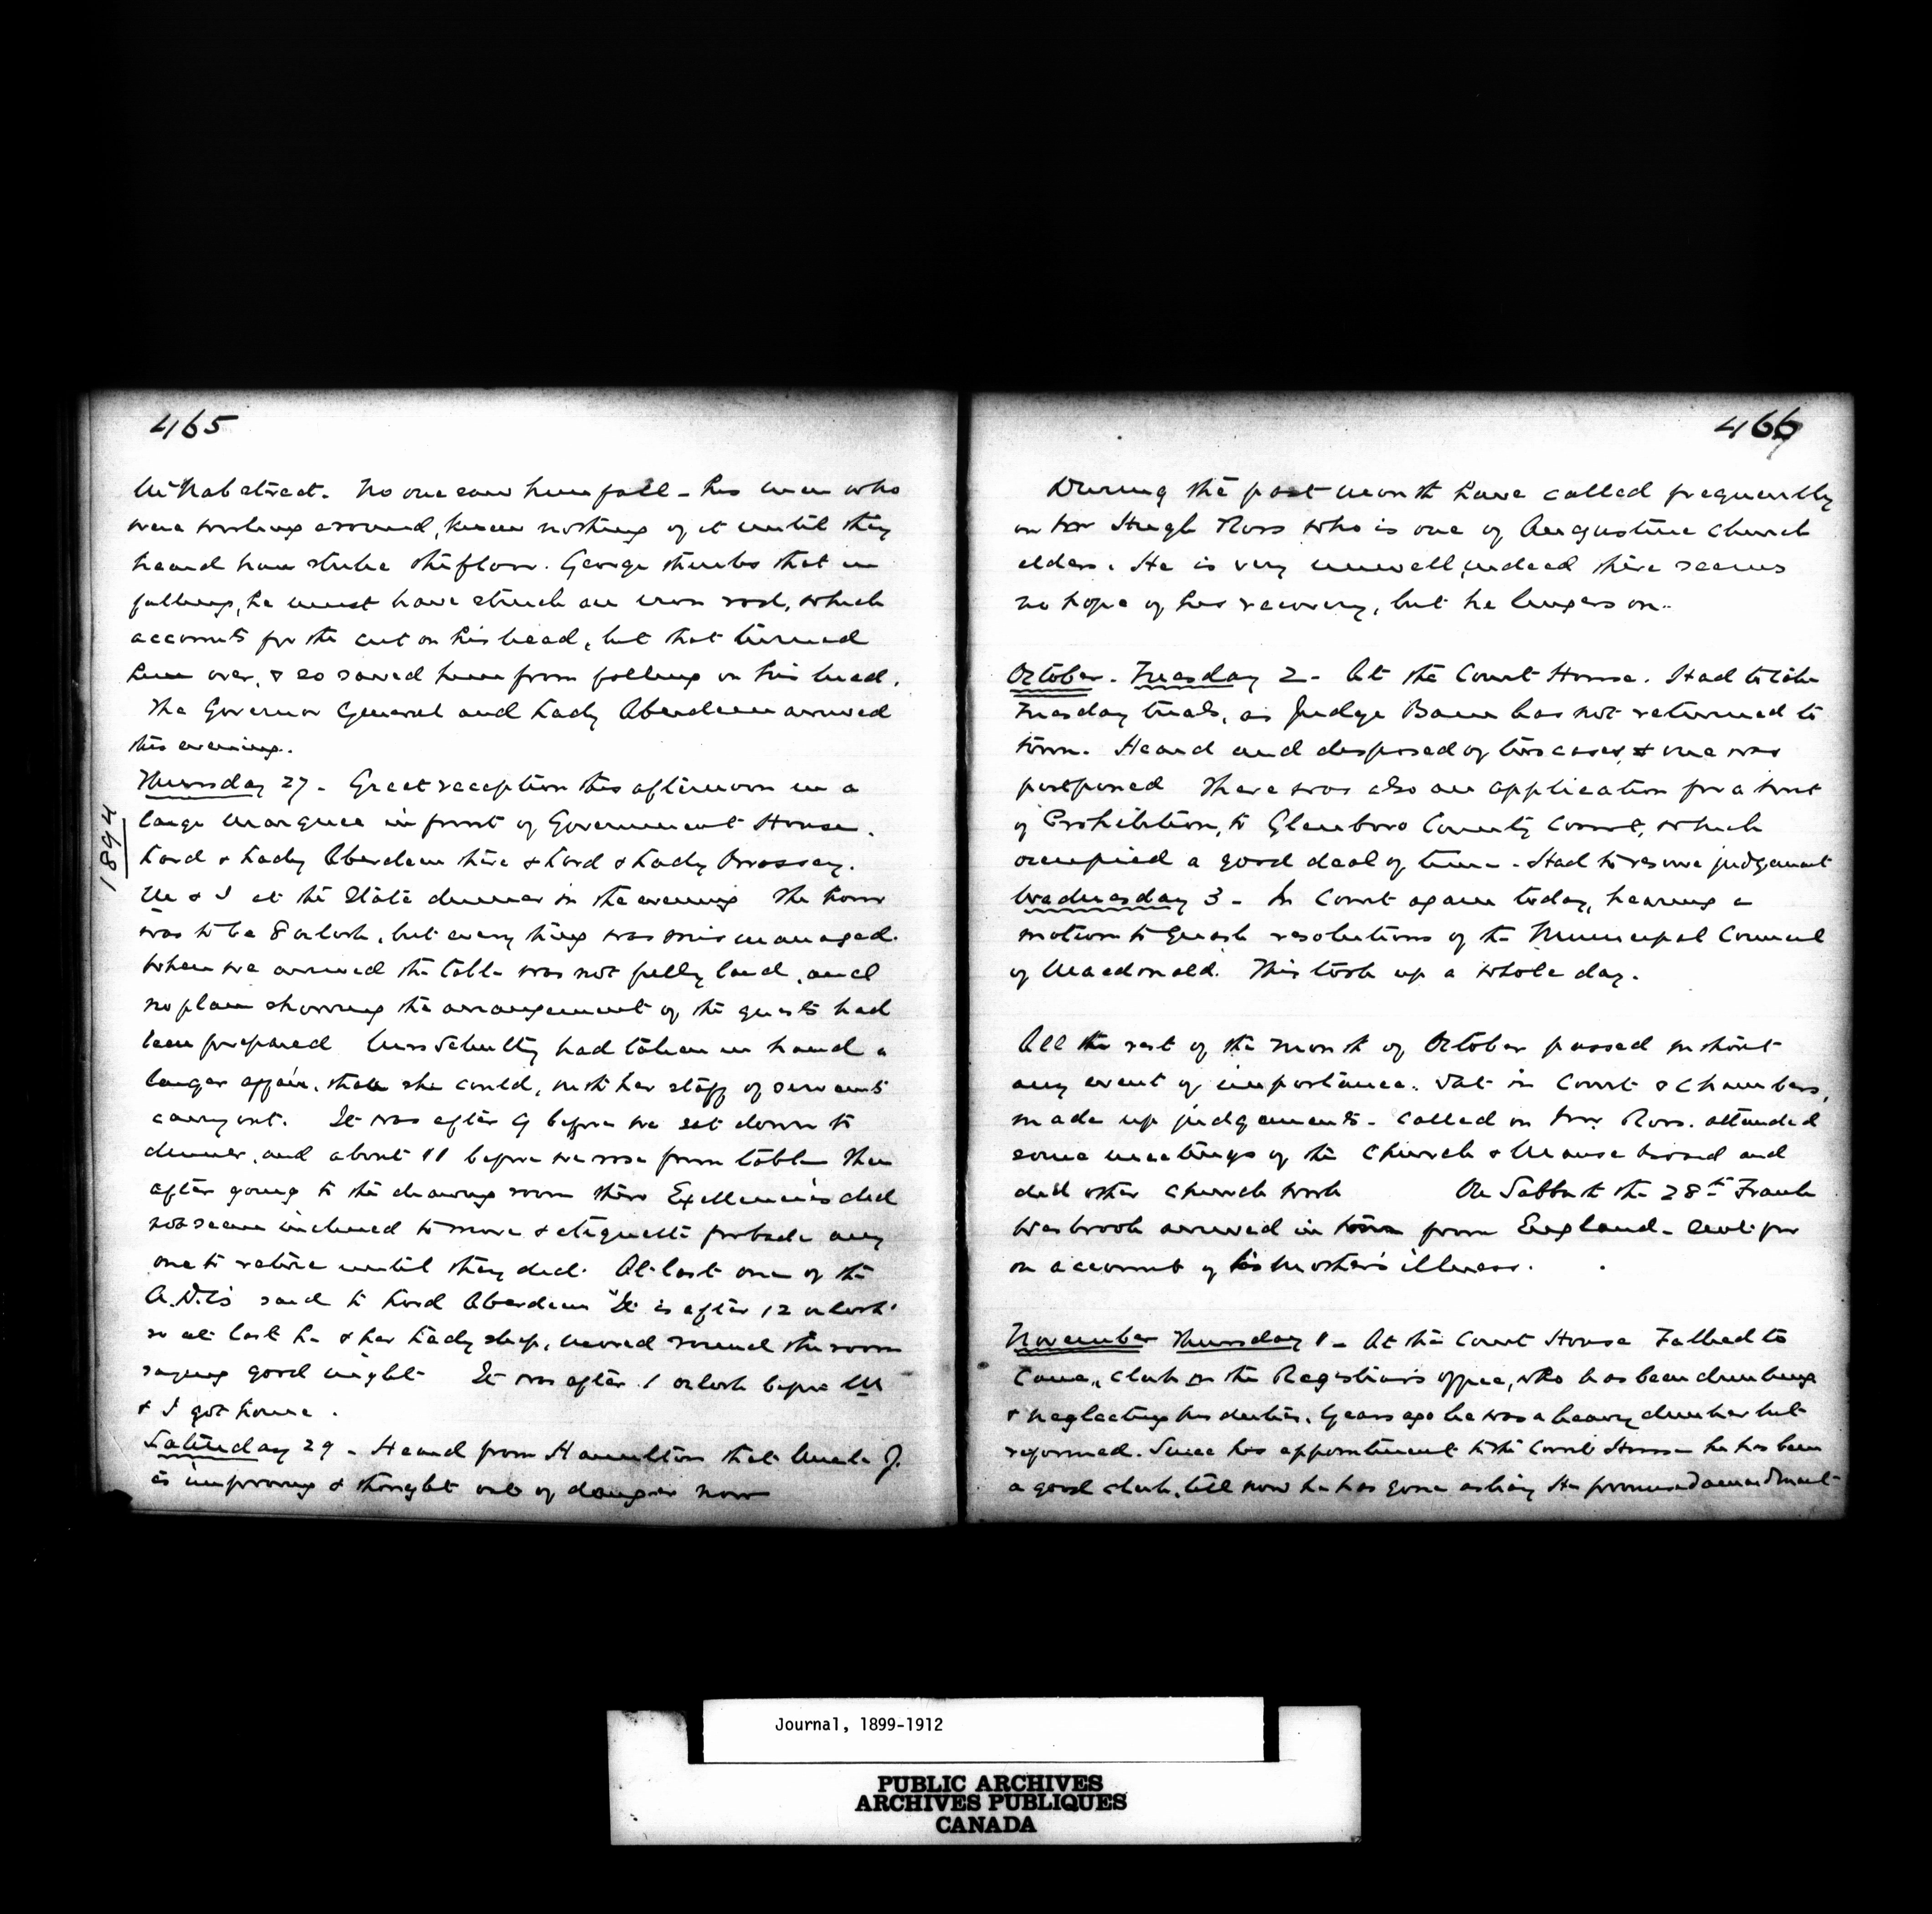 465
McNab street. No one saw him fall - his men who
were working around, knew nothing of it until they
heard him strike the floor. George thinks that in
falling, he must have struck an iron rod, which
accounts for the cut on his head, but that turned
him over, & so saved him from falling on his head.
The Governor General and Lady Aberdeen arrived
this evening.
1894
Thursday 27 - Great reception this afternoon in a
large marquee in front of Government House.
Lord & Lady Aberdeen there & Lord & Lady Brassey.
M & I at the State dinner in the evening The hour
was to be 8 oclock, but every thing was mismanaged.
When we arrived the table was not fully laid, and
no plan showing the arrangement of the guests had
been prepared Mrs Schultz had taken in hand a
larger affair, than she could, with her staff of servants
carry out. It was after 9 before we sat down to
dinner, and about 11 before we rose from table Then
after going to the drawing room their Exellencies did
not seem inclined to move & etiquette forbade any
one to retire until they did. At last one of the
A.D.Cs said to Lord Aberdeen "It is after 12 oclock"
so at last he & her Ladyship, moved round the room
saying good night It was after 1 oclock before M
& I got home.
Saturday 29 - Heard from Hamilton that Uncle J.
is improving & thought out of danger now
466
During the past month have called frequently
on Mr Hugh Ross who is one of Augustine Church
elders. He is very unwell, indeed there seems
no hope of his recovery, but he lingers on.
October. Tuesday 2 - At the Court House. Had to take
Tuesday trials, as Judge Bain has not returned to
town. Heard and disposed of two cases, & one was
postponed There was also an application for a writ
of Prohibition, to Glenboro County Court, which
occupied a good deal of time - Had to reserve judgement
Wednesday 3 - In Court again today, hearing a
motion to quash resolutions of the Municipal Council
of Macdonald. This took up a whole day.
All the rest of the month of October passed without
any event of importance. Sat in Court & Chambers,
made up judgements - called on Mr. Ross. attended
some meetings of the Church & Manse board and
did other church work On Sabbath the 28th Frank
Wasbrook arrived in town from England - sent for
on account of his mother's illness.
November Thursday 1 - At the Court House Talked to
clerk in the Registrar's office, who has been drinking
& neglecting his duties. Years ago he was a heavy drinker but
reformed. Since his appointment to the Court House he has been
a good clerk, till now he has gone astray He promised amendment
Journal, 1899-1912
PUBLIC ARCHIVES
ARCHIVES PUBLIQUES
CANADA